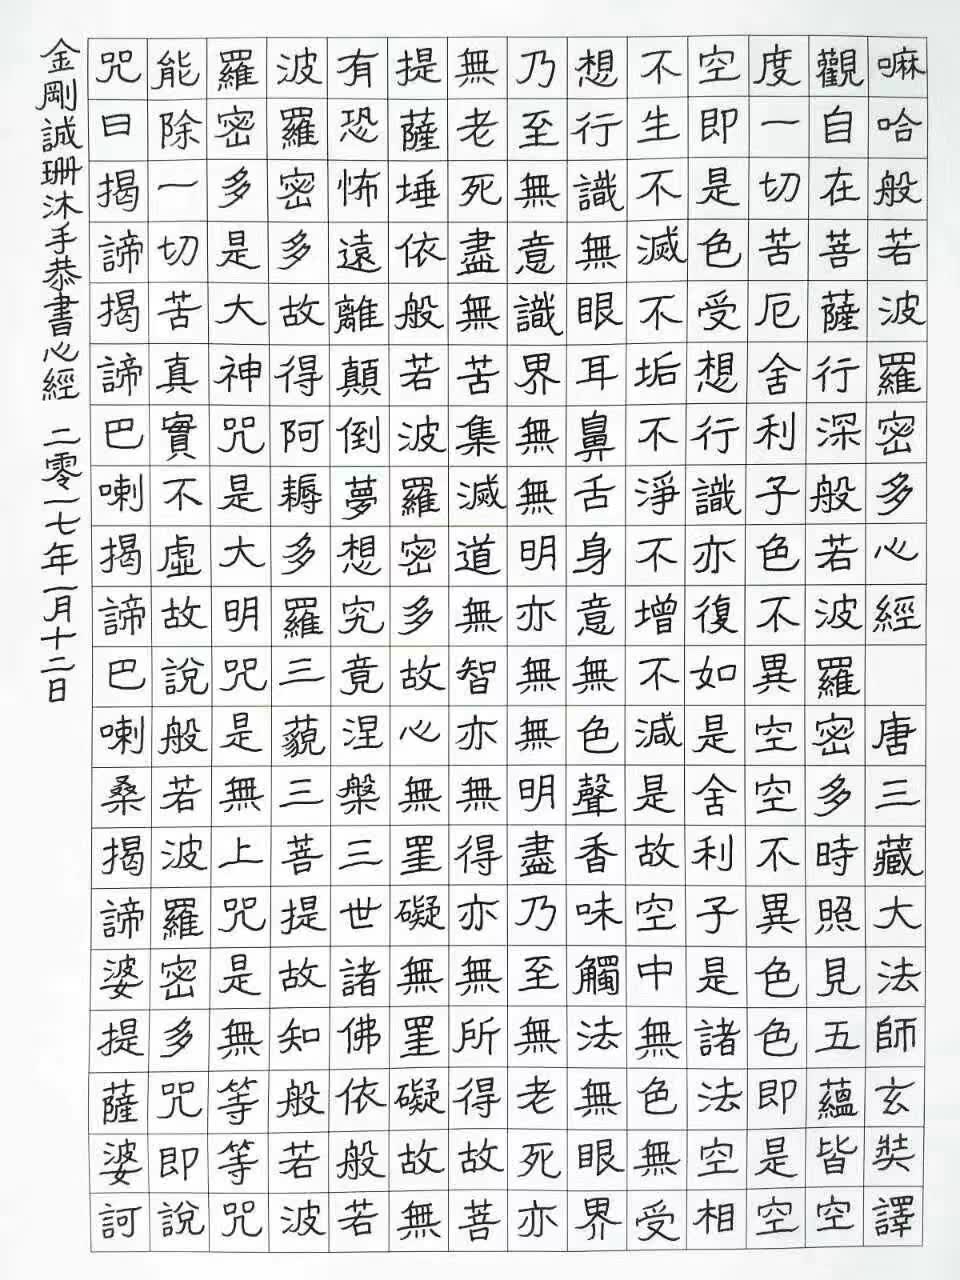 嘛哈般若波羅密多心經 唐三藏大法師玄奘譯
觀自在菩薩行深般若波羅密多時照見五蘊皆空
度一切苦厄舍利子色不異空空不異色色即是空
空即是色受想行識亦復如是舍利子是諸法空相
不生不滅不垢不淨不增不減是故空中無色無受
想行識無眼耳鼻舌身意無色聲香味觸法無眼界
乃至無意識界無無明亦無無明盡乃至無老死亦
無老死盡無苦集滅道無智亦無得亦無所得故菩
提薩埵依般若波羅密多故心無罣礙無罣礙故無
有恐怖遠離顛倒夢想究竟涅槃三世諸佛依般若
波羅密多故得阿耨多羅三藐三菩提故知般若波
羅密多是大神咒是大明咒是無上咒是無等等咒
能除一切苦真實不虛故說般若波羅密多咒即說
咒曰揭諦揭諦巴喇揭諦巴喇桑揭諦婆提薩婆訶
金剛誠珊沐手恭書心經 二零一七年一月十二日